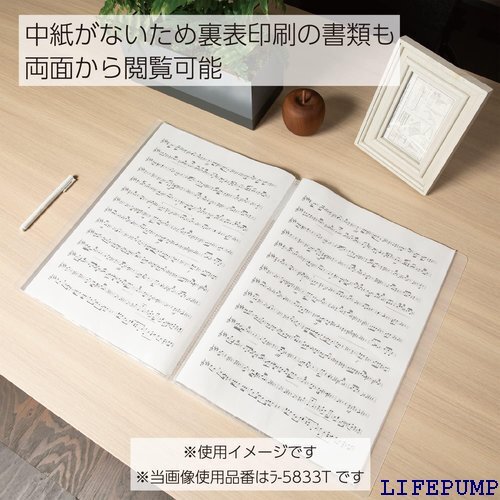 中紙がないため裏表印刷の書類も
両面から閲覧可能
※使用イメージです
※当画像使用品番はﾗ-5833Tです
LIFEPUMP